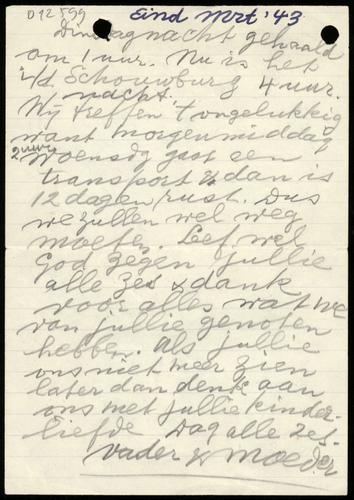 D12599
Eind Mrt. '43
Dinsdagnacht gehaald
om 1 uur. Nu is het
i/d Schouwburg 4 uur.
nacht.
Wij treffen 't ongelukkig
want morgenmiddag
2 uur
woensdg gaat een
transport & dan is
12 dagen rust. Dus
we zullen wel weg
moeten. Leef wel
God zegen jullie
alle zes & dank
voor alles wat we
van jullie genoten
hebben. Als jullie
ons niet meer zien
later dan denk aan
ons met jullie kinder-
liefde Dag alle zes.
Vader & Moeder